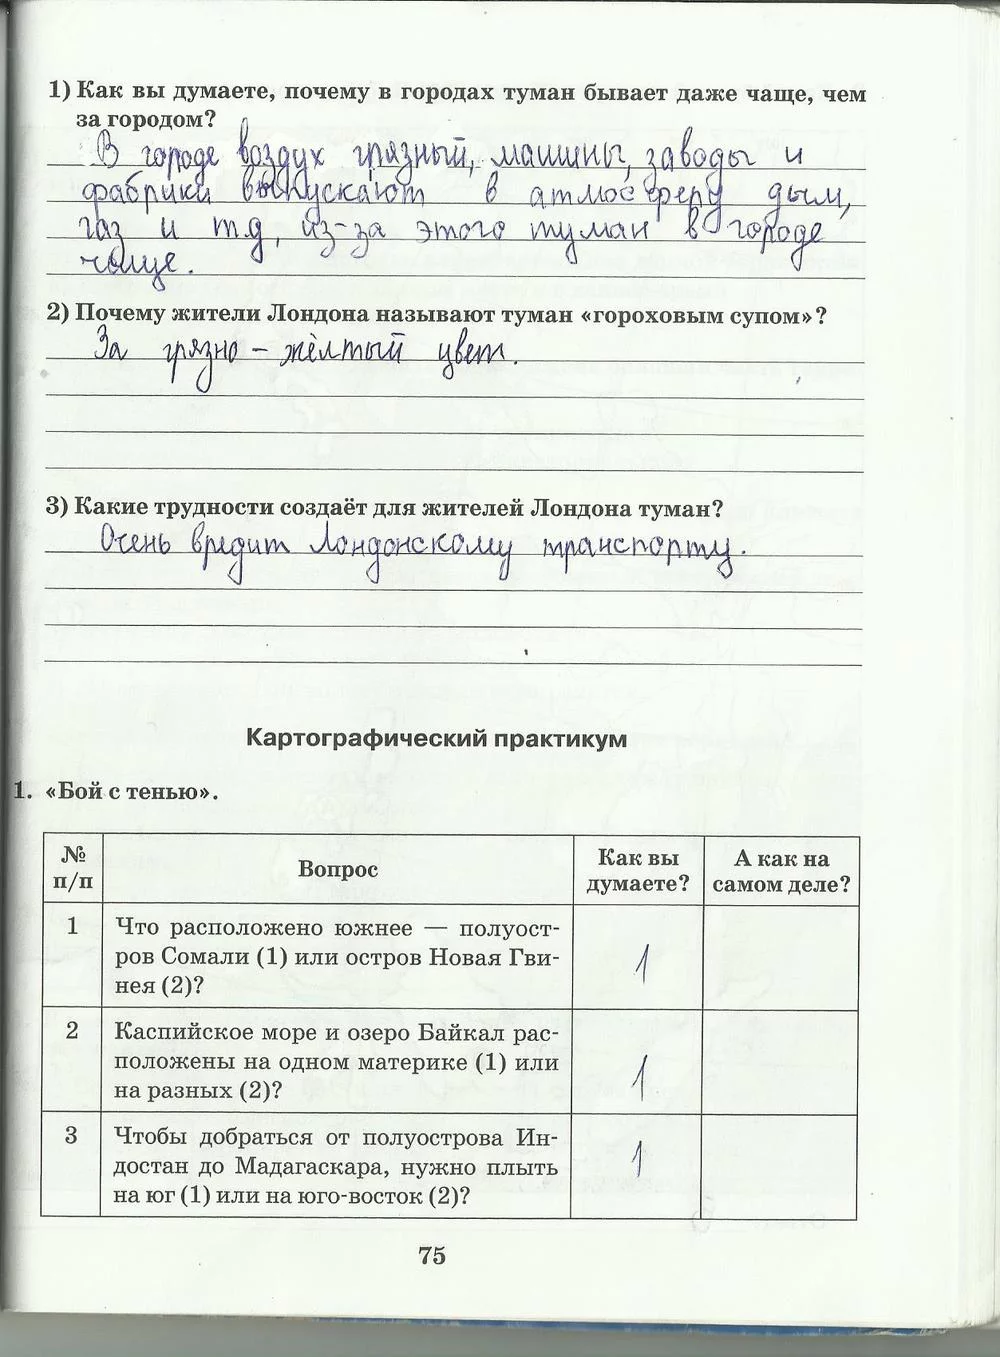 1) Как вы думаете, почему в городах туман бывает даже чаще, чем
за городом?
В городе воздух грязный, машины, заводы и
фабрики выпускают в атмосферу дым,
газ и т.д, из-за этого туман в городе
чаще.
2) Почему жители Лондона называют туман «гороховым супом»?
За грязно-жёлтый цвет.
3) Какие трудности создаёт для жителей Лондона туман?
Очень вредит Лондонскому транспорту.
Картографический практикум
1. «Бой с тенью».
№ Вопрос Как вы А как на
п/п думаете? самом деле?
1 Что расположено южнее — полуост-
ров Сомали (1) или остров Новая Гви- 1
нея (2)?
2 Каспийское море и озеро Байкал рас-
положены на одном материке (1) или 1
на разных (2)?
3 Чтобы добраться от полуострова Ин- 1
достан до Мадагаскара, нужно плыть
на юг (1) или на юго-восток (2)?
75